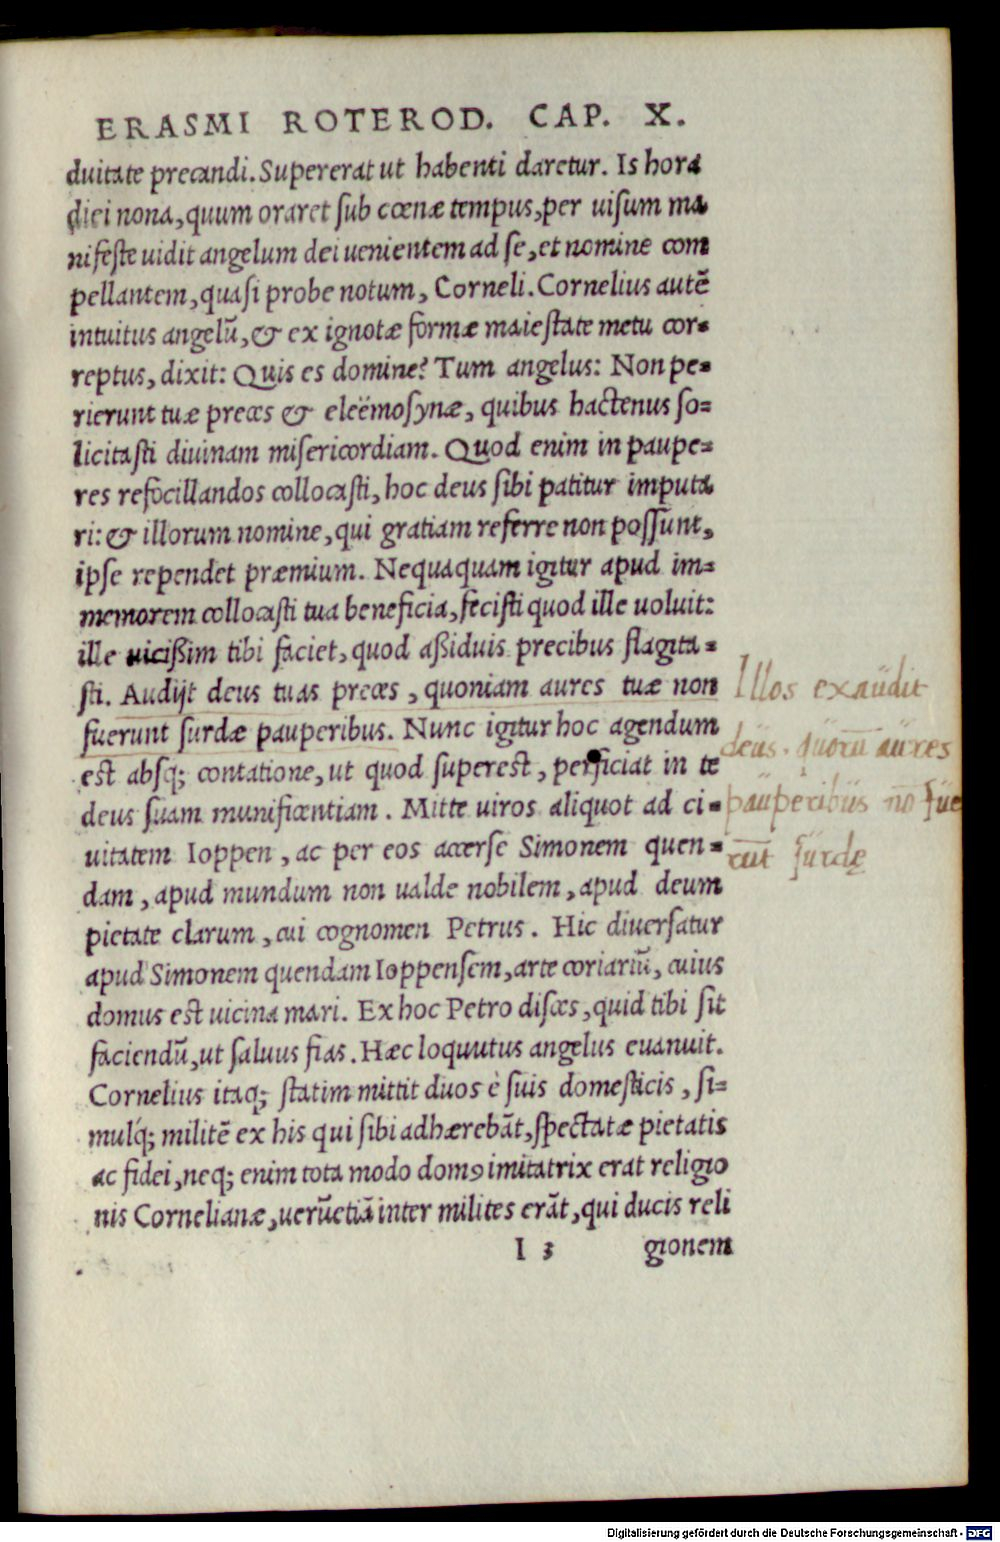 ERASMI ROTEROD. CAP. X.
duitate precandi. Supererat ut habenti daretur. Is hora
diei nona, quum oraret sub cœnæ tempus, per uisum ma
nifeste uidit angelum dei uenientem ad se, et nomine com
pellantem, quasi probe notum, Corneli. Cornelius autē
intuitus angelū, & ex ignotæ formæ maiestate metu cor=
reptus, dixit: Quis es domine? Tum angelus: Non pe=
rierunt tuæ preces & eleëmosynæ, quibus hactenus so=
licitasti diuinam misericordiam. Quod enim in paupe=
res refocillandos collocasti, hoc deus sibi patitur imputa
ri: & illorum nomine, qui gratiam referre non possunt,
ipse rependet præmium. Nequaquam igitur apud im=
memorem collocasti tua beneficia, fecisti quod ille uoluit:
ille uicißim tibi faciet, quod aßiduis precibus flagita=
sti. Audijt deus tuas preces, quoniam aures tuæ non
fuerunt surdæ pauperibus. Nunc igitur hoc agendum
est absq; contatione, ut quod superest, perficiat in te
deus suam munificentiam. Mitte uiros aliquot ad ci=
uitatem Ioppen, ac per eos accerse Simonem quen=
dam, apud mundum non ualde nobilem, apud deum
pietate clarum, cui cognomen Petrus. Hic diuersatur
apud Simonem quendam Ioppensem, arte coriariū, cuius
domus est uicina mari. Ex hoc Petro disces, quid tibi sit
faciendū, ut saluus fias. Hæc loquutus angelus euanuit.
Cornelius itaq; statim mittit duos è suis domesticis, si=
mulq́; militē ex his qui sibi adhærebāt, spectatæ pietatis
ac fidei, neq; enim tota modo domꝰ imitatrix erat religio
nis Cornelianæ, uerūetiā inter milites erāt, qui ducis reli
I 3 gionem
Illos exaüdit
deüs. qüorū aüres
paüperibüs nō füe
rūt sürdę
Digitalisierung gefördert durch die Deutsche Forschungsgemeinschaft - DFG